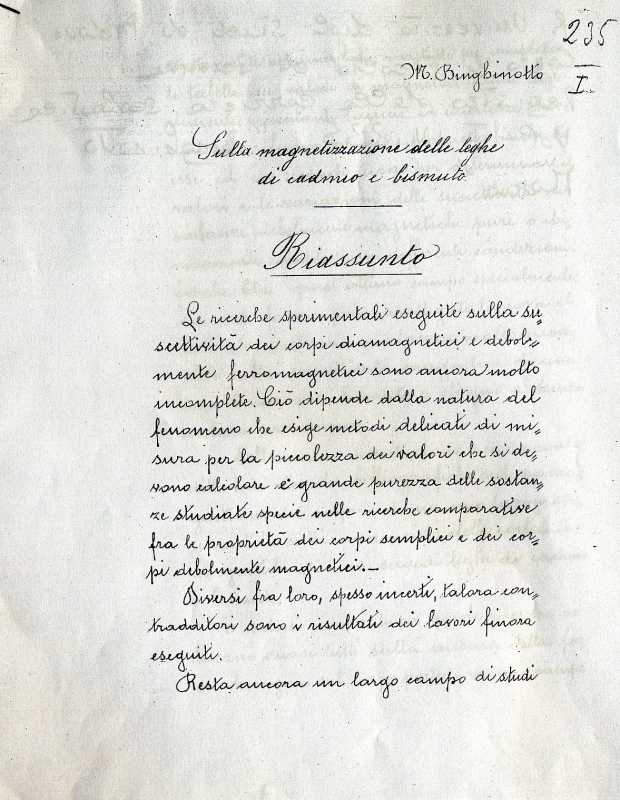 235
I.
M. Binghinotto
Sulla magnetizzazione delle leghe
di cadmio e bismuto
Riassunto
Le ricerche sperimentali eseguite sulla su=
scettività dei corpi diamagnetici e debol=
mente ferromagnetici sono ancora molto
incomplete. Ciò dipende dalla natura del
fenomeno che esige metodi delicati di mi=
sura per la piccolezza dei valori che si de=
vono calcolare e grande purezza delle sostan=
ze studiate specie nelle ricerche comparative
fra le proprietà dei corpi semplici e dei cor=
pi debolmente magnetici.—
Diversi fra loro, spesso incerti, talora con=
tradditori sono i risultati dei lavori finora
eseguiti.
Resta ancora un largo campo di studi